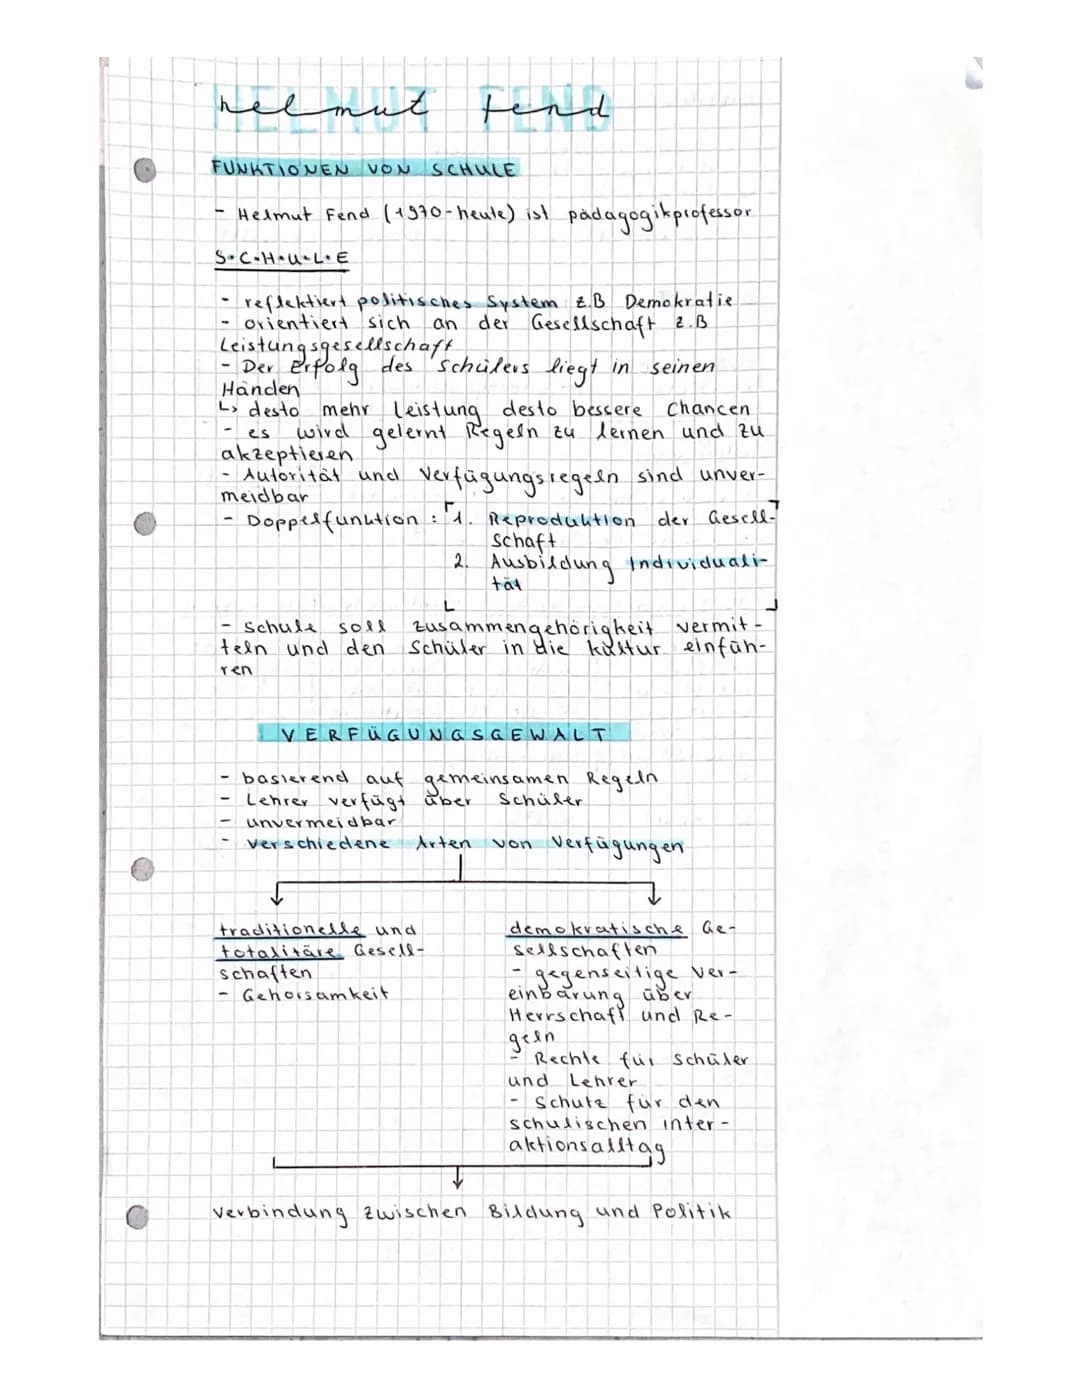 HELMUT FEND
helmut fend
FUNKTIONEN VON SCHULE
- Helmut Fend (1970-heute) ist pädagogikprofessor
S•C•H•U•L•E
- reflektiert politisches System z.B Demokratie
- orientiert sich an der Gesellschaft z.B
Leistungsgesellschaft
- Der Erfolg des Schülers liegt in seinen
Händen
↳ desto mehr Leistung desto bessere Chancen
- es wird gelernt Regeln zu lernen und zu
akzeptieren
- Autorität und Verfügungsregeln sind unver-
meidbar
- Doppelfunktion : 1. Reproduktion der Gesell-
schaft
2. Ausbildung Individuali-
tät
- Schule soll zusammengehörigkeit vermit-
teln und den Schüler in die kultur einfüh-
ren
VERFÜGUNGSGEWALT
- basierend auf gemeinsamen Regeln
- Lehrer verfügt über Schüler
- unvermeidbar
- verschiedene Arten von Verfügungen
traditionelle und
totalitäre Gesell-
schaften
- Gehorsamkeit
demokratische Ge-
sellschaften
- gegenseitige Ver-
einbarung über
Herrschaft und Re-
geln
- Rechte für Schüler
und Lehrer
- Schutz für den
schulischen inter-
aktionsalltag
verbindung zwischen Bildung und Politik